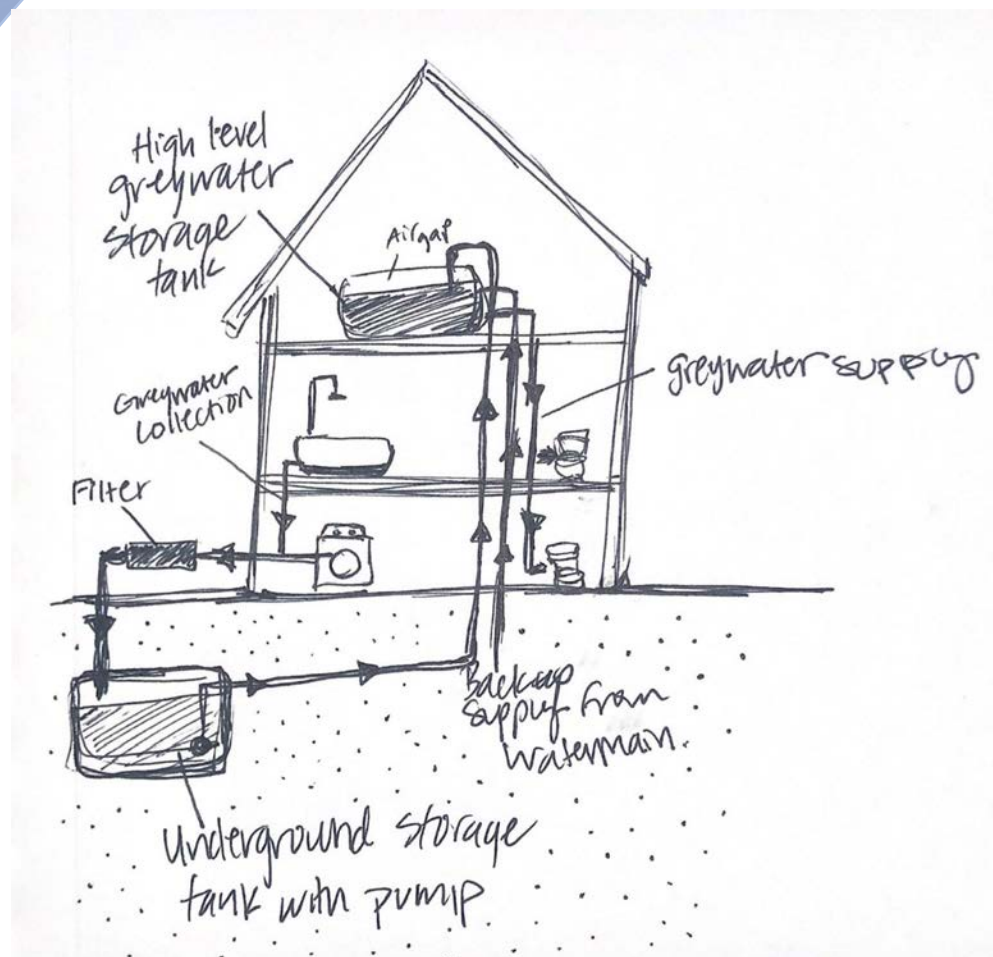 High level
greywater
storage
tank
Airgap
greywater supply
Greywater
collection
Filter
Backup
supply from
watermain.
Underground storage
tank with pump